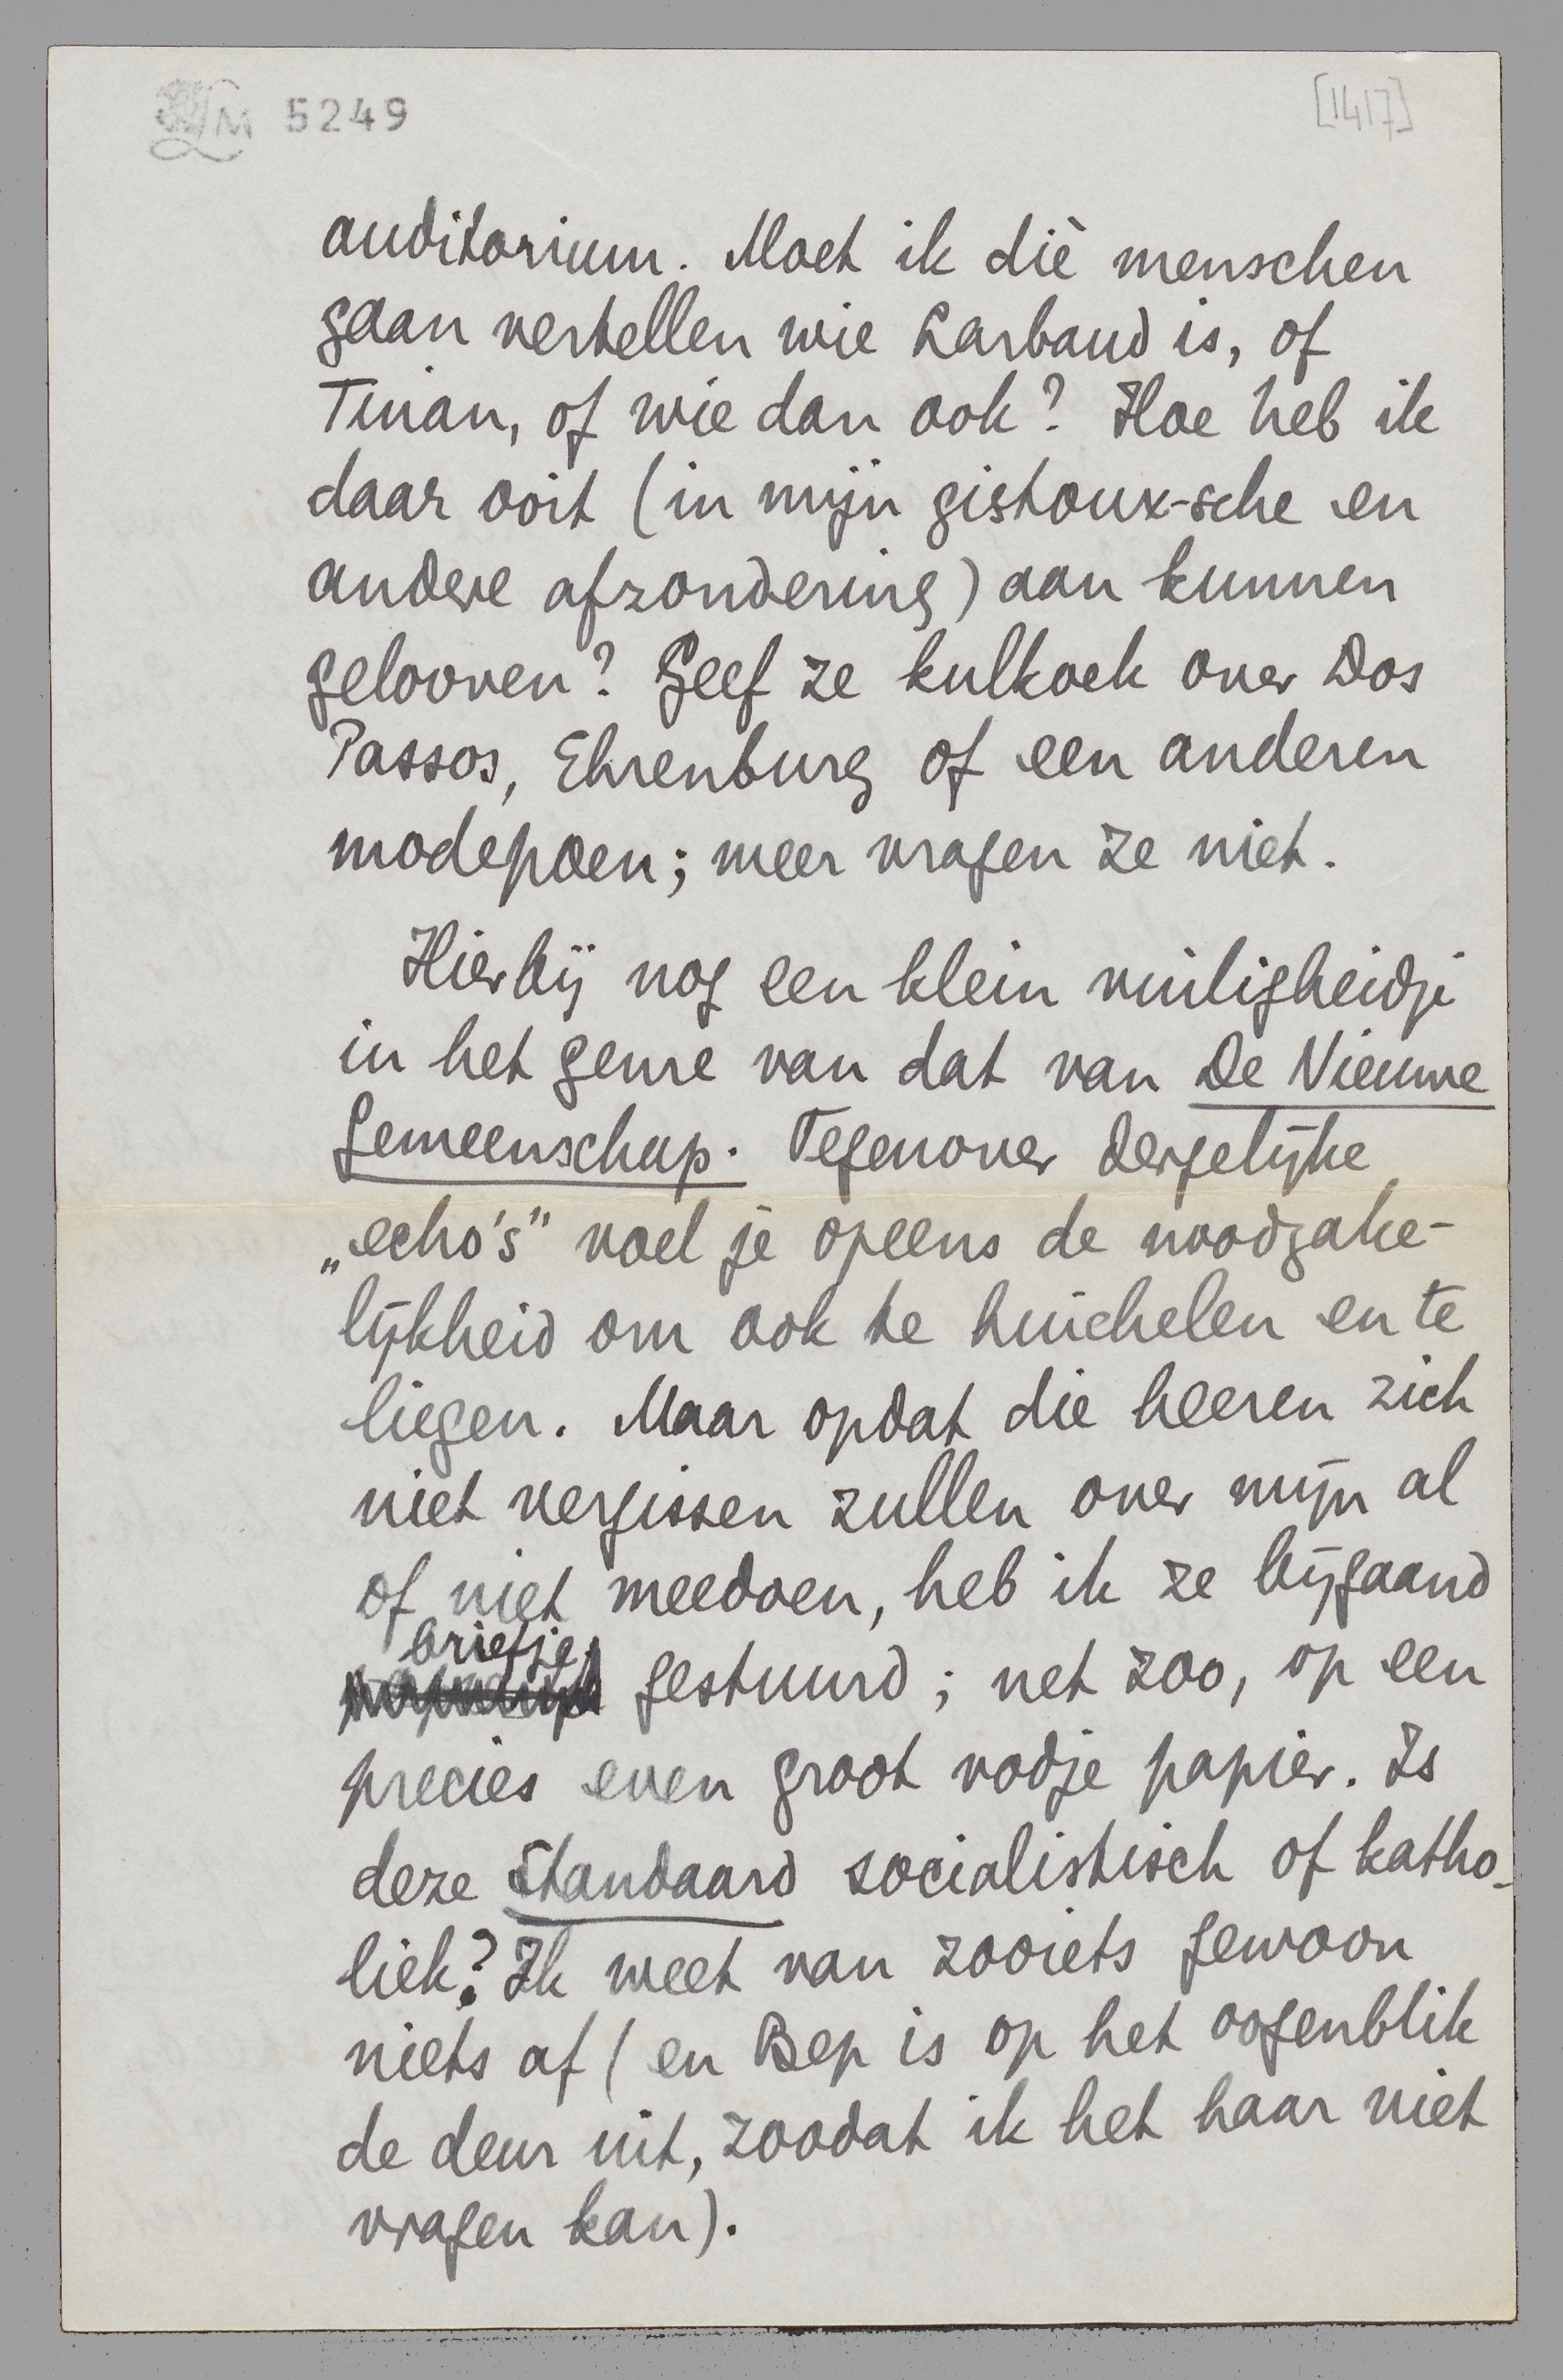 LM 5249
[1417]
auditorium. Moet ik diè menschen
gaan vertellen wie Larbaud is, of
Tinan, of wie dan ook? Hoe heb ik
daar ooit (in mijn gistoux-sche en
andere afzondering) aan kunnen
gelooven? Geef ze kulkoek over Dos
Passos, Ehrenburg of een anderen
modepoen; meer vragen ze niet.
Hierbij nog een klein vuiligheidje
in het genre van dat van De Nieuwe
Gemeenschap. Tegenover dergelijke
„echo's” voel je opeens de noodzake-
lijkheid om ook te huichelen en te
liegen. Maar opdat die heeren zich
niet vergissen zullen over mijn al
of niet meedoen, heb ik ze bijgaand
briefje
gestuurd; net zoo, op een
precies even groot vodje papier. Is
deze Standaard socialistisch of katho-
liek? Ik weet van zooiets gewoon
niets af (en Bep is op het oogenblik
de deur uit, zoodat ik het haar niet
vragen kan).